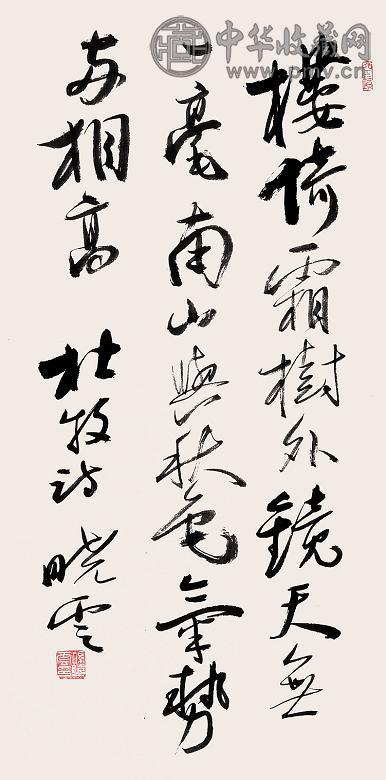 樓倚霜樹外鏡天無
一毫南山與秋色氣勢
兩相高
杜牧詩 曉雲
中华收藏网
www.pmv.cn